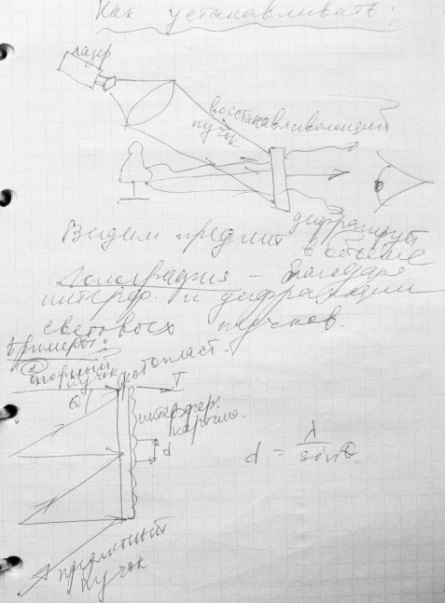 Как устанавливать:
лазер
восстанавливающий
пучок
дифрагируют
Видим предмет в объёме
Голография – благодаря
интерф. и дифракции
световых пучков.
Примеры:
① опорный
пучок
фотопласт.
θ
T
интерфер.
картина.
d
d = λ / sin θ.
предметный
пучок